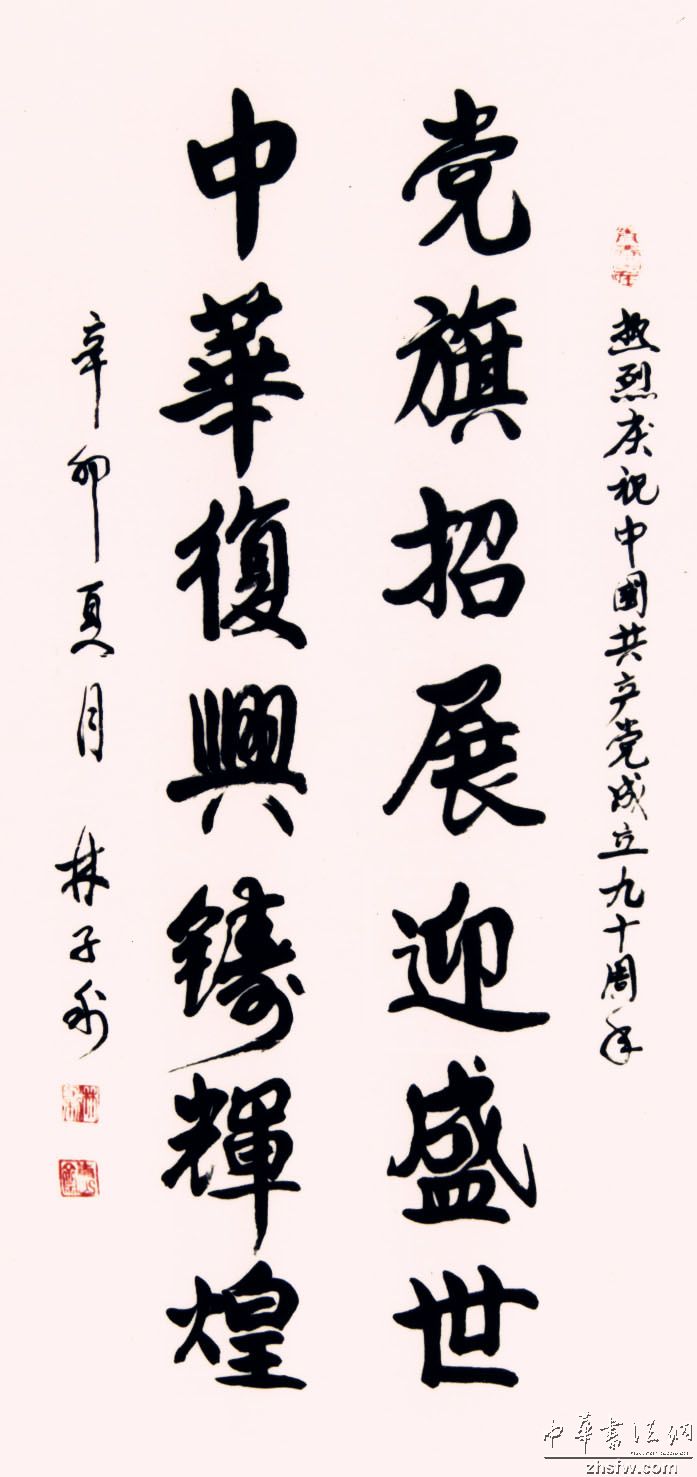 热烈庆祝中國共产党成立九十周年
党旗招展迎盛世
中華復興鑄輝煌
辛卯夏月 林子利
中华书法网
zhsfw.com